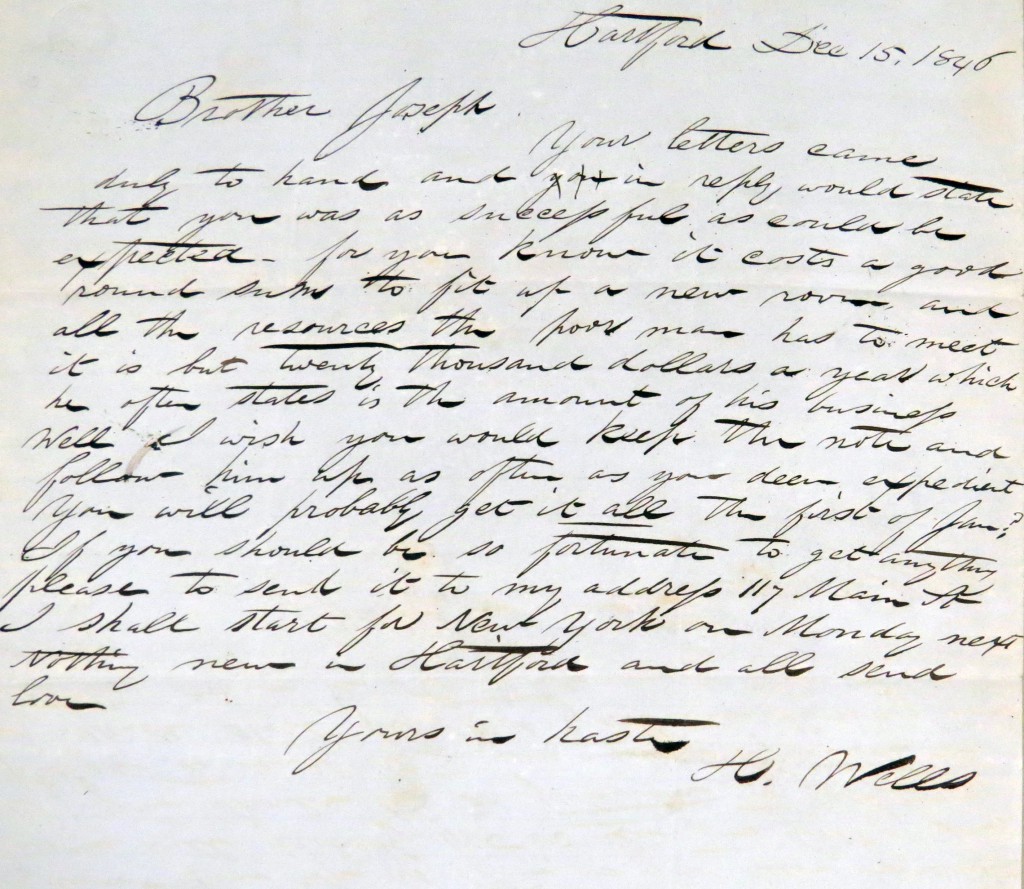 Hartford Dec 15. 1846
Brother Joseph
Your letters came
duly to hand and in reply would state
that you was as successful as could be
expected - for you know it costs a good
round sum to fit up a new room and
all the resources the poor man has to meet
it is but twenty thousand dollars a year which
he often states is the amount of his business
Well I wish you would keep the note and
follow him up as often as you deem expedient
You will probably get it all the first of Jan?
If you should be so fortunate to get anything
please to send it to my address 117 Main St
I shall start for New York on Monday next
Nothing new in Hartford and all send
love
Yours in haste
H. Wells